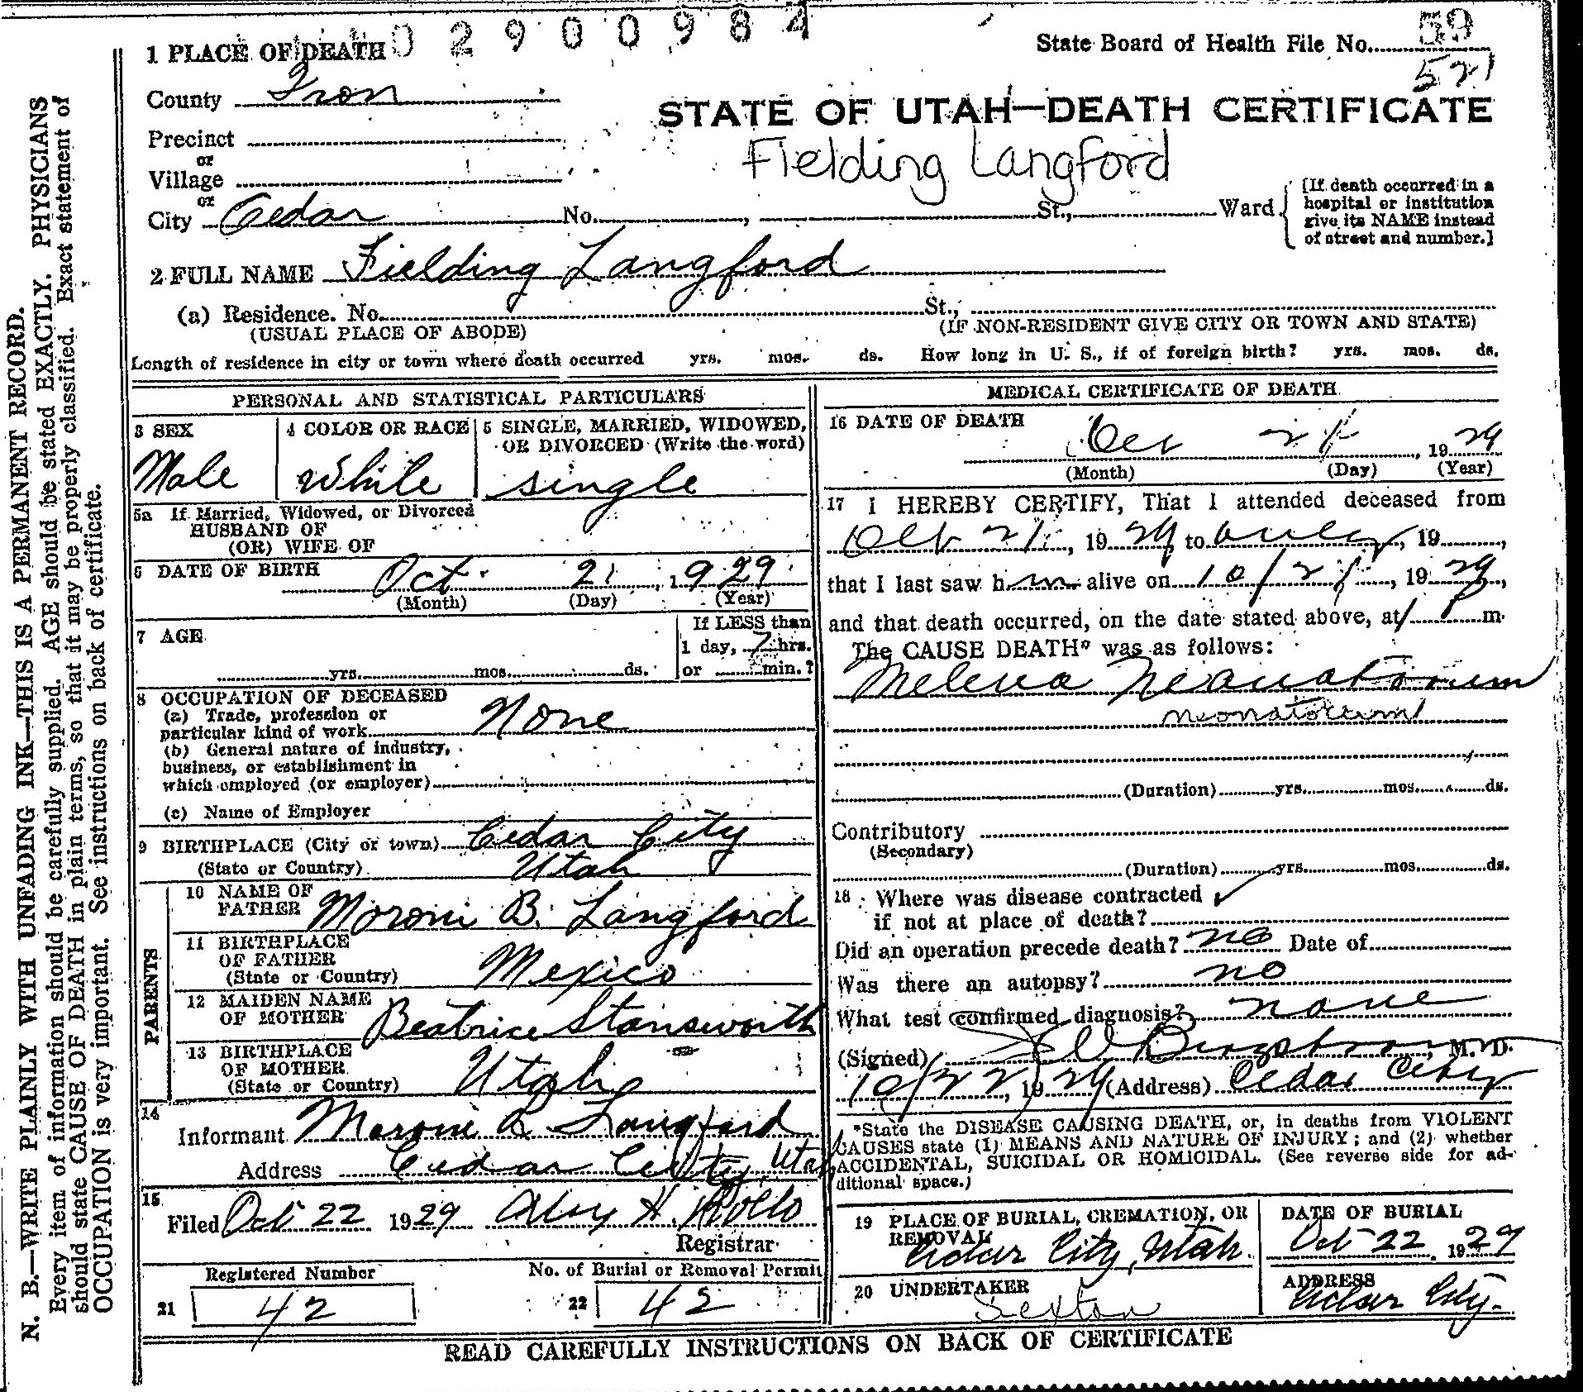 02900984
1 PLACE OF DEATH
State Board of Health File No. 59
521
County Iron
STATE OF UTAH—DEATH CERTIFICATE
Precinct
or
Village
Fielding Langford
or
City Cedar No. , St., Ward
[If death occurred in a
hospital or institution
give its NAME instead
of street and number.]
2 FULL NAME Fielding Langford
(a) Residence. No. St.,
(USUAL PLACE OF ABODE) (IF NON-RESIDENT GIVE CITY OR TOWN AND STATE)
Length of residence in city or town where death occurred yrs. mos. ds. How long in U. S., if of foreign birth? yrs. mos. ds.
PERSONAL AND STATISTICAL PARTICULARS
3 SEX
Male
4 COLOR OR RACE
White
5 SINGLE, MARRIED, WIDOWED,
OR DIVORCED (Write the word)
single
5a If Married, Widowed, or Divorced
HUSBAND OF
(OR) WIFE OF
6 DATE OF BIRTH Oct. 21, 1929
(Month) (Day) (Year)
7 AGE
yrs. mos. ds.
If LESS than
1 day, 7 hrs.
or min.?
8 OCCUPATION OF DECEASED
(a) Trade, profession or
particular kind of work None
(b) General nature of industry,
business, or establishment in
which employed (or employer)
(c) Name of Employer
9 BIRTHPLACE (City or town) Cedar City
(State or Country) Utah
PARENTS
10 NAME OF
FATHER Moroni B. Langford
11 BIRTHPLACE
OF FATHER
(State or Country) Mexico
12 MAIDEN NAME
OF MOTHER Beatrice Stansworth
13 BIRTHPLACE
OF MOTHER
(State or Country) Utah
14
Informant Moroni Langford
Address Cedar City, Utah
15
Filed Oct 22 1929 H.
Registrar
Registered Number
21 42
No. of Burial or Removal Permit
22 42
MEDICAL CERTIFICATE OF DEATH
16 DATE OF DEATH
Oct 21, 1929
(Month) (Day) (Year)
17 I HEREBY CERTIFY, That I attended deceased from
Oct 21, 1929 to only, 19
that I last saw him alive on 10/21, 1929,
and that death occurred, on the date stated above, at 1 P m.
The CAUSE DEATH* was as follows:
Melena Neonatorum
neonatorum
(Duration) yrs. mos. ds.
Contributory
(Secondary)
(Duration) yrs. mos. ds.
18 Where was disease contracted
if not at place of death?
Did an operation precede death? no Date of
Was there an autopsy? no
What test confirmed diagnosis? none
(Signed) Bergstrom, M. D.
10/22, 1929 (Address) Cedar City
*State the DISEASE CAUSING DEATH, or, in deaths from VIOLENT
CAUSES state (1) MEANS AND NATURE OF INJURY; and (2) whether
ACCIDENTAL, SUICIDAL OR HOMICIDAL. (See reverse side for ad-
ditional space.)
19 PLACE OF BURIAL, CREMATION, OR
REMOVAL
Cedar City, Utah.
DATE OF BURIAL
Oct 22, 1929
20 UNDERTAKER
Sexton
ADDRESS
Cedar City.
READ CAREFULLY INSTRUCTIONS ON BACK OF CERTIFICATE
N. B.—WRITE PLAINLY WITH UNFADING INK—THIS IS A PERMANENT RECORD.
Every item of information should be carefully supplied. AGE should be stated EXACTLY. PHYSICIANS
should state CAUSE OF DEATH in plain terms, so that it may be properly classified. Exact statement of
OCCUPATION is very important. See instructions on back of certificate.